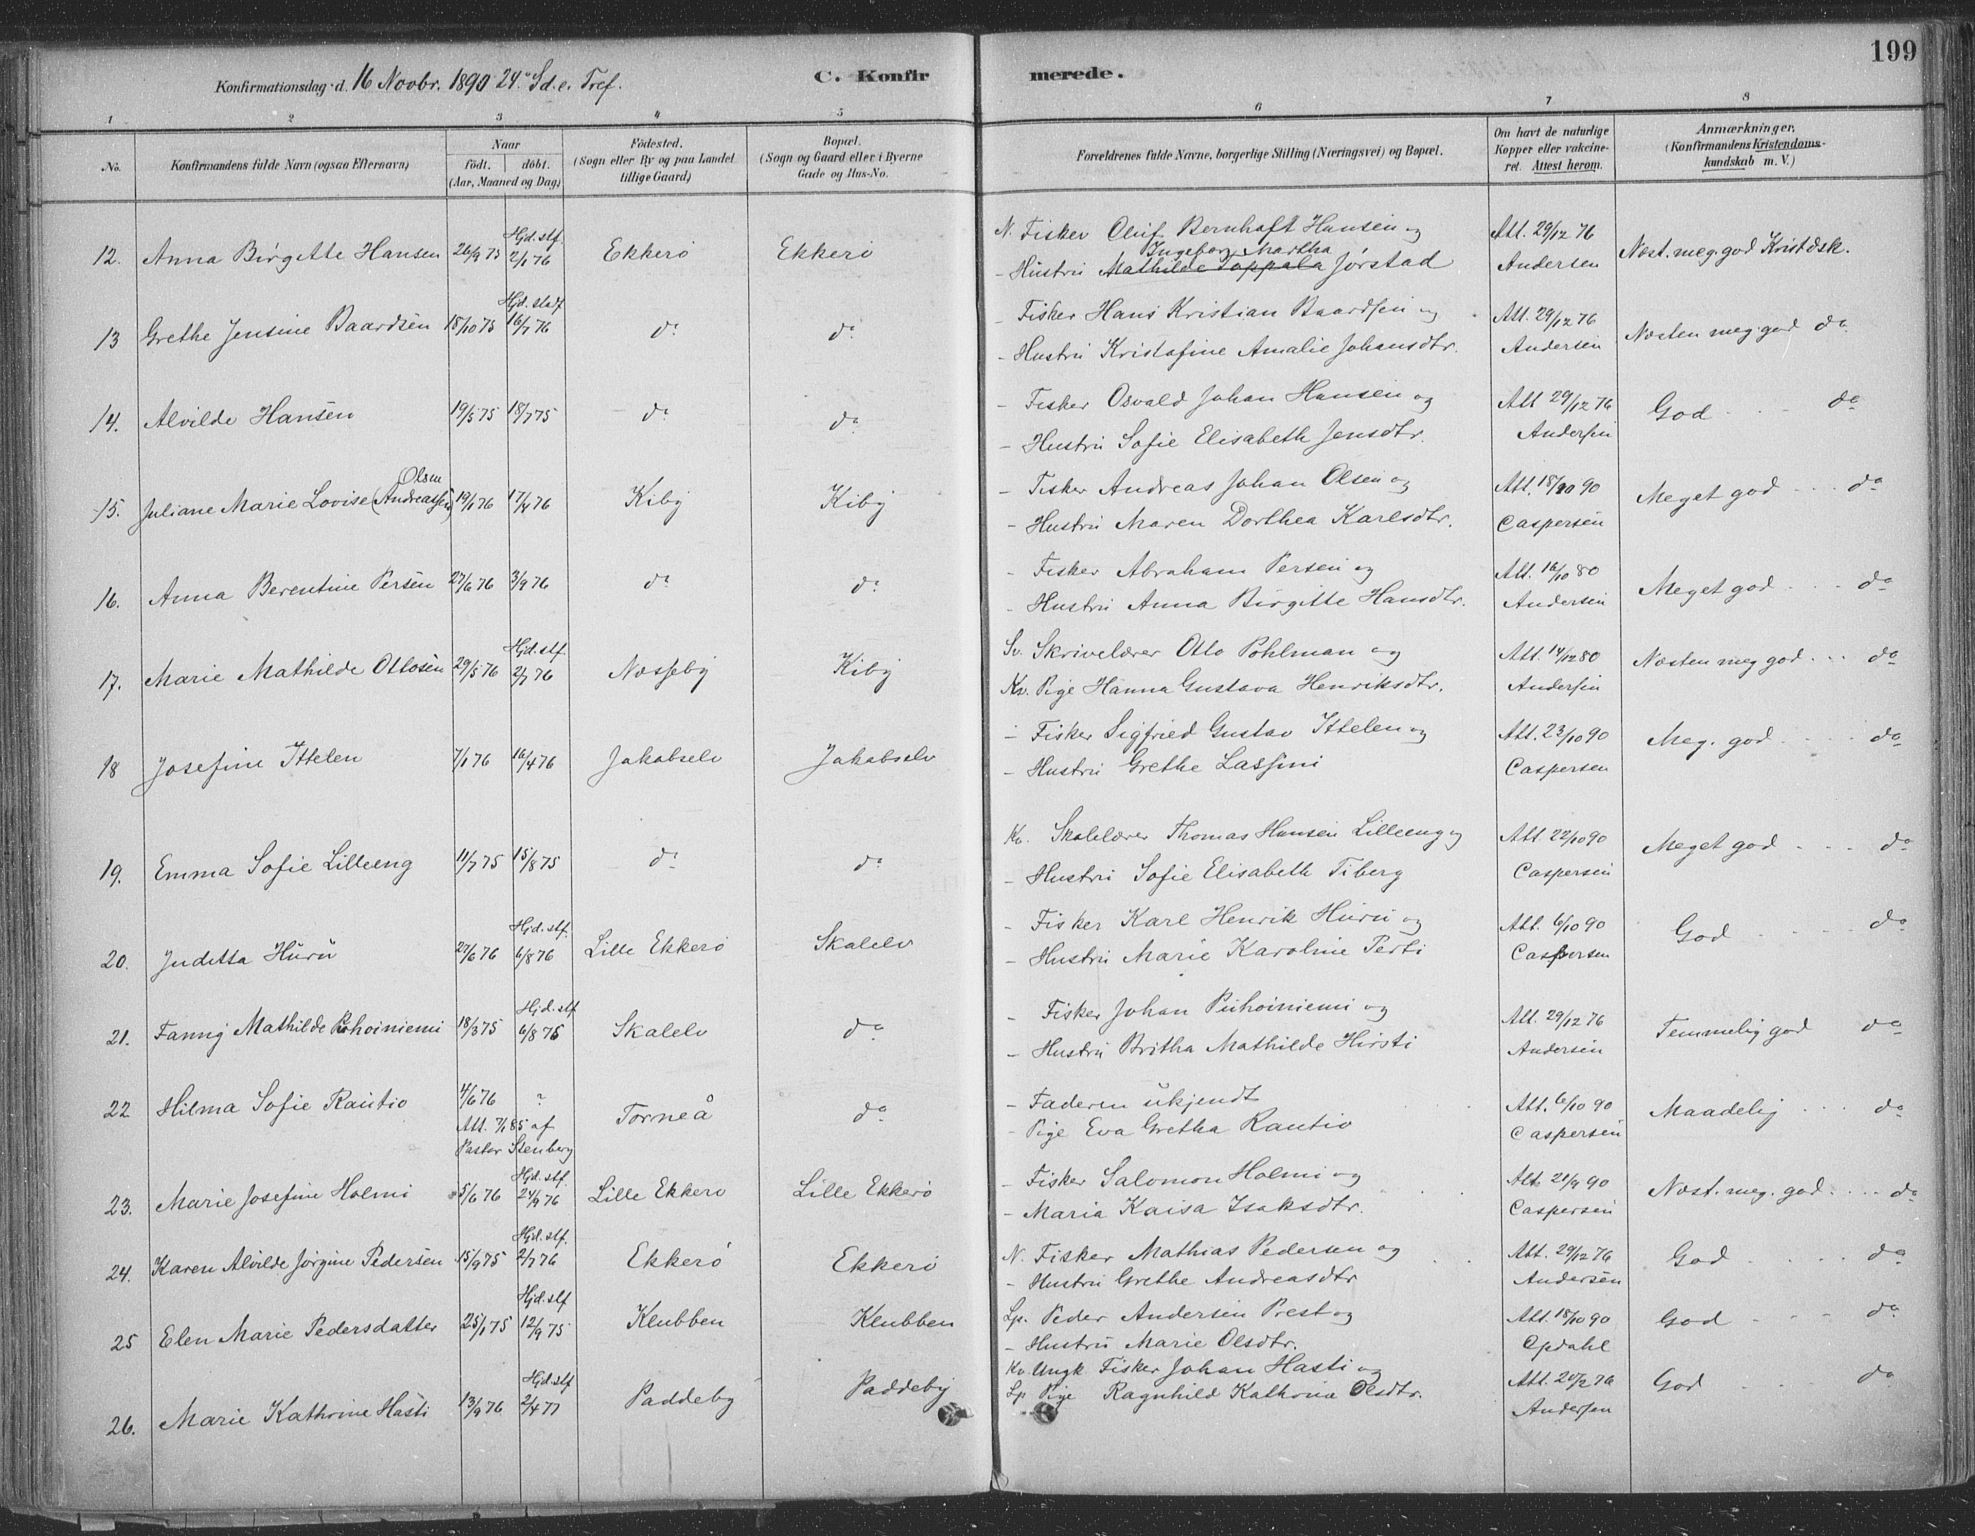 199
Konfirmationsdag d. 16 Novbr. 1890 24 Sd. e. Tref. C. Konfirmerede.
1 2 3 4 5 6 7 8
No. Konfirmandens fulde Navn (ogsaa Efternavn) Naar födt. döbt. (Aar, Maaned og Dag) Födested. (Sogn eller By og paa Landet tillige Gaard) Bopæl. (Sogn og Gaard eller i Byerne Gade og Hus-No. Forældrenes fulde Navne, borgerlige Stilling (Næringsvei) og Bopæl. Om havt de naturlige Kopper eller vakcineret. Attest herom. Anmærkninger. (Konfirmandens Kristendomskundskab m. V.)
12. Anna Birgitte Hansen 26/9 75 Hjd. stf. 2/1 76 Ekkerö Ekkerö N. Fisker Oluf Bernhaft Hansen og Att. 29/12 76 Næst. meg. god Kristdsk.
Ingeborg Martha
- Hustru Mathilde Toppala Jörstad Andersen
13 Grethe Jensine Baardsen 18/10 75 Hjd. stadf 16/7 76 do do - Fisker Hans Kristian Baardsen og Att. 29/12 76 Næsten meg. god do
- Hustru Kristofine Amalie Johansdtr. Andersen
14. Alvilde Hansen 19/5 75 18/7 75 do do - Fisker Osvald Johan Hansen og Att 29/12 76 God do
- Hustru Sofie Elisabeth Jensdtr. Andersen
15. Juliane Marie Lovise (Andreassen) Olsen 19/1 76 17/4 76 Kiby Kiby - Fisker Andreas Johan Olsen og Att. 18/10 90 Meget god do
- Hustru Maren Dorthea Karlsdtr. Caspersen
16. Anna Berentine Persen 27/6 76 3/9 76 do do - Fisker Abraham Persen og Att. 16/10 80 Meget god do
- Hustru Anna Birgitte Hansdtr. Andersen
17. Marie Mathilde Ottosen 29/5 76 Hjd. stf. 2/7 76 Næsseby Kiby Sv. Skrivelærer Otto Pohlman og Att. 14/12 80 Næsten meg god do
Kv. Pige Hanna Gustava Henriksdtr. Andersen
18 Josefine Ittelen 7/1 76 16/4 76 Jakobselv Jakobselv - Fisker Sigfried Gustav Ittelen og Att. 23/10 90 Meg. god do
- Hustru Grethe Lassini Caspersen
19. Emma Sofie Lilleeng 11/7 75 15/8 75 do do Kv. Skolelærer Thomas Hansen Lilleeng og Att. 22/10 90 Meget god do
- Hustru Sofie Elisabeth Tiberg Caspersen
20. Juditta Huru 27/6 76 Hjd. stf. 6/8 76 Lille Ekkerö Skalelv - Fisker Karl Henrik Huru og Att. 6/10 90 God do
- Hustru Marie Karoline Perti Caspersen
21. Fanny Mathilde Puhoiniemi 18/3 75 Hjd. stf 6/8 75 Skalelv do - Fisker Johan Puhoiniemi og Att. 29/12 76 Temmelig god do
- Hustru Britha Mathilde Hirsti Andersen
22 Hilma Sofie Rautio 4/6 76 ? Torneå do - Faderen ukjendt Att. 6/10 90 Maadelig do
Att. 7/1 85 af Pastor Stenberg - Pige Eva Gretha Rautio Caspersen
23. Marie Josefine Holmi 5/6 76 Hjd. stf. 24/9 76 Lille Ekkerö Lille Ekkerö - Fisker Salomon Holmi og Att. 21/9 90 Næst. meg. god do
- Maria Kaisa Isaksdtr. Caspersen
24. Karen Alvilde Jörgine Pedersen 15/9 75 Hjd. stf. 2/7 76 Ekkerö Ekkerö N. Fisker Mathias Pedersen og Att. 29/12 76 God do
- Hustru Grethe Andreasdtr Andersen
25 Elen Marie Pedersdatter 25/1 75 Hjd. stf 12/9 75 Klubben Klubben Lp. Peder Andersen Prest og Att. 18/10 90 God do
- Hustru Marie Olsdtr. Opdahl
26. Marie Kathrine Hasti 13/9 76 Hjd. stf 2/4 77 Paddeby Paddeby Kv Ungk Fisker Johan Hasti og Att. 20/2 76 God do
Lp Pige Ragnhild Kathrine Olsdtr. Andersen